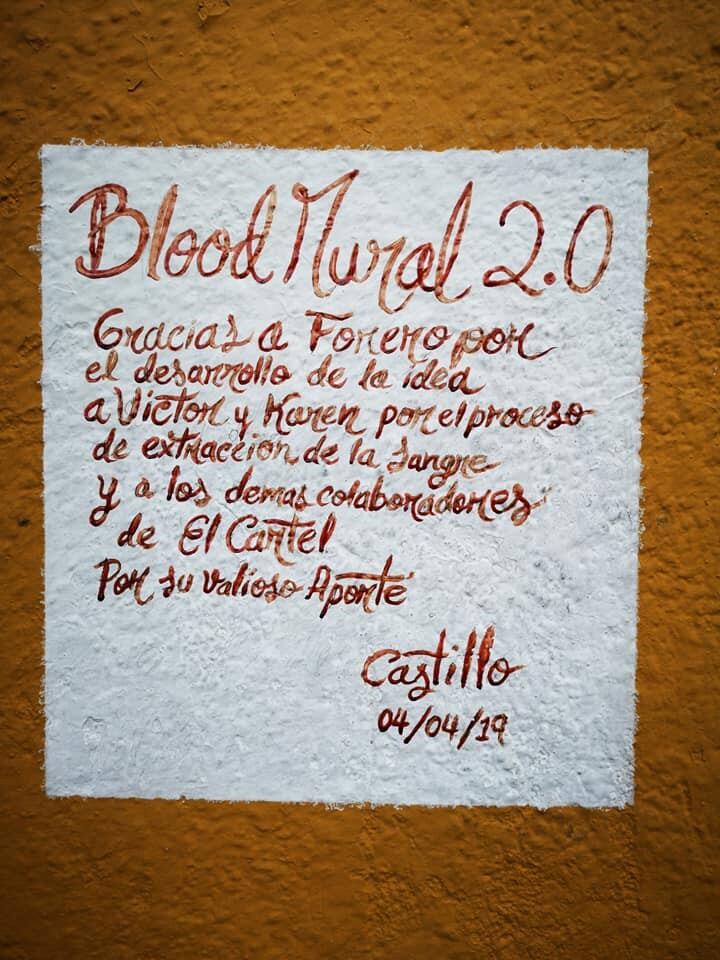 Blood Mural 2.0
Gracias a Forero por
el desarrollo de la idea
a Victor y Karen por el proceso
de extraccion de la sangre
y a los demas colaboradores
de El Cartel
Por su valioso Aporte
Castillo
04/04/19